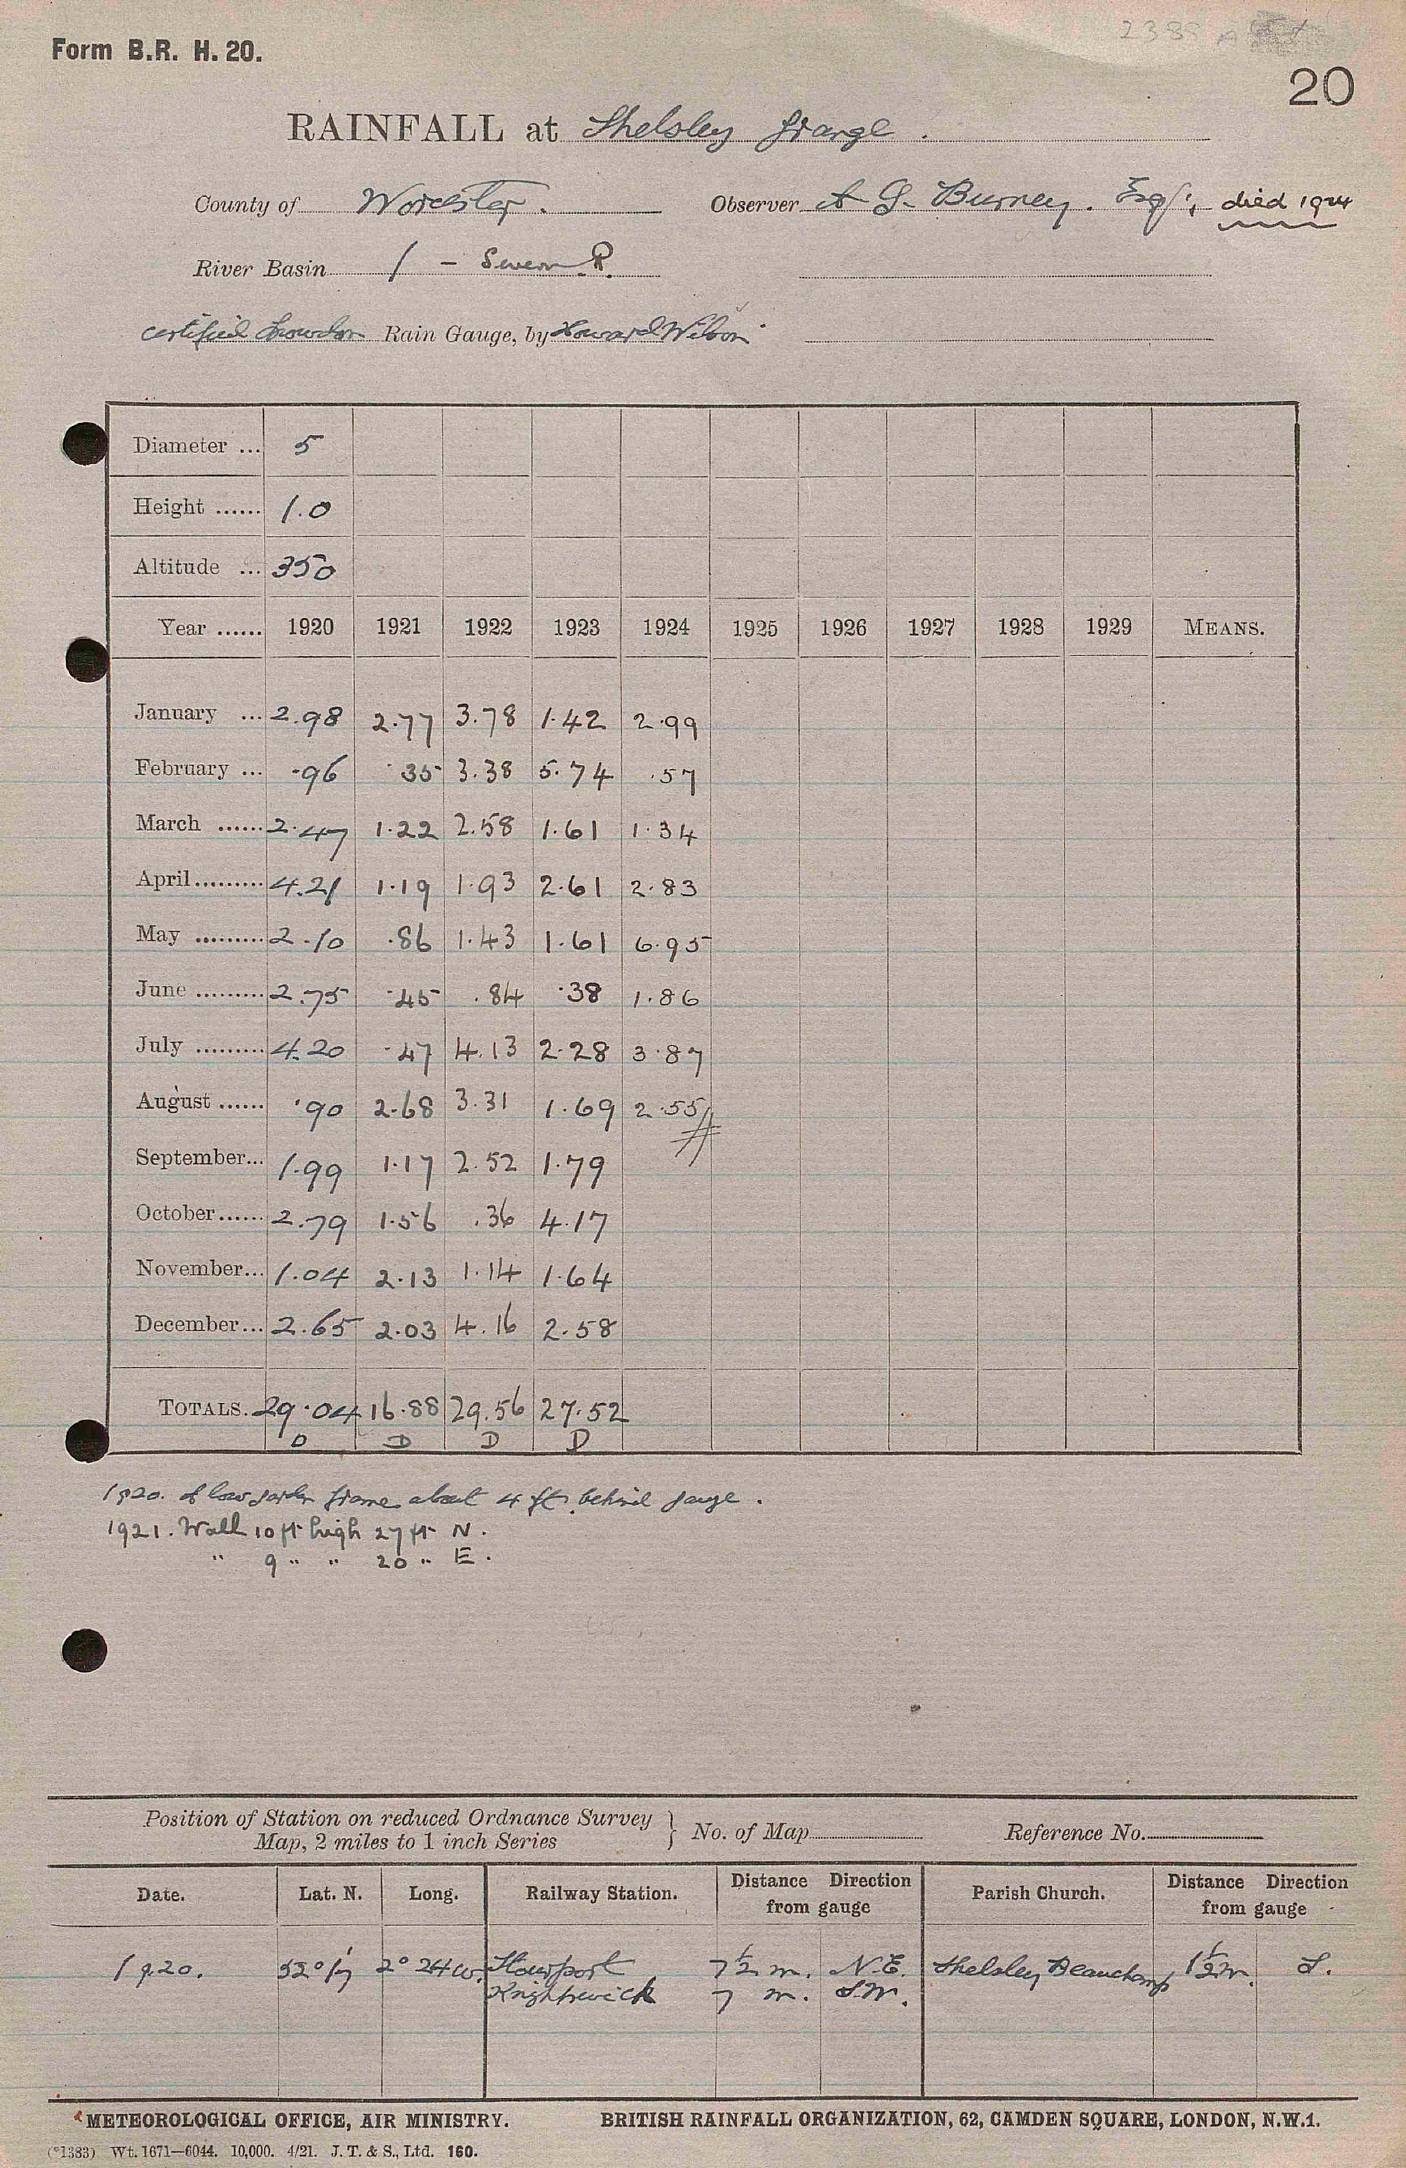 Form B.R. H. 20.
20
RAINFALL at Shelsley Grange.
County of Worcester. Observer A G. Burney. Esq., died 1924
River Basin / - Severn R.
certified Snowdon Rain Gauge, by Howard Wilson
Diameter ... 5
Height ...... 1.0
Altitude ... 350
Year ...... 1920 1921 1922 1923 1924 1925 1926 1927 1928 1929 MEANS.
January ... 2.98 2.77 3.78 1.42 2.99
February ... .96 .35 3.38 5.74 .57
March ...... 2.47 1.22 2.58 1.61 1.34
April ......... 4.21 1.19 1.93 2.61 2.83
May ......... 2.10 .86 1.43 1.61 6.95
June ......... 2.75 .45 .84 .38 1.86
July ......... 4.20 .47 4.13 2.28 3.87
August ...... .90 2.68 3.31 1.69 2.55
September... 1.99 1.17 2.52 1.79
October ...... 2.79 1.56 .36 4.17
November... 1.04 2.13 1.14 1.64
December... 2.65 2.03 4.16 2.58
TOTALS. 29.04 16.88 29.56 27.52
D D D D
1920. A low garden frame about 4 ft. behind gauge.
1921. Wall 10 ft high 27 ft N.
" 9 " " 20 " E.
Position of Station on reduced Ordnance Survey
Map, 2 miles to 1 inch Series } No. of Map Reference No.
Date. Lat. N. Long. Railway Station. Distance Direction from gauge Parish Church. Distance Direction from gauge
1920. 52° 17' 2° 24 W. Stourport 7 1/2 m. N.E. Shelsley Beauchamp 1 1/2 m. S.
Knightwick 7 m. S.W.
METEOROLOGICAL OFFICE, AIR MINISTRY. BRITISH RAINFALL ORGANIZATION, 62, CAMDEN SQUARE, LONDON, N.W.1.
(*1383) Wt. 1671—6044. 10,000. 4/21. J. T. & S., Ltd. 160.